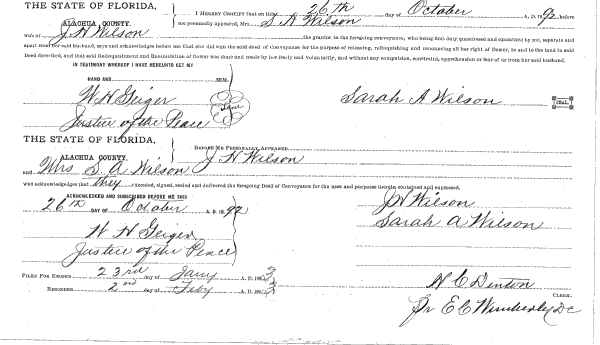 THE STATE OF FLORIDA,
ALACHUA COUNTY.
I HEREBY CERTIFY that on this 26th day of October A. D. 1892, before
me personally appeared Mrs S. A Wilson
wife of J H Wilson the grantor in the foregoing conveyance, who being first duly questioned and examined by me, separate and
apart from her said husband, says and acknowledges before me that she did sign the said deed of Conveyance for the purpose of releasing, relinquishing and renouncing all her right of Dower, in and to the land in said
Deed described, and that said Relinquishment and Renunciation of Dower was done and made by her freely and voluntarily, and without any compulsion, constraint, apprehension or fear of or from her said husband.
IN TESTIMONY WHEREOF I HAVE HEREUNTO SET MY
HAND AND SEAL
W. H. Geiger
Justice of the Peace
Seal
Sarah A Wilson
SEAL.
THE STATE OF FLORIDA,
ALACHUA COUNTY.
BEFORE ME PERSONALLY APPEARED J H Wilson
and Mrs S. A. Wilson
who acknowledges that they executed, signed, sealed and delivered the foregoing Deed of Conveyance for the uses and purposes therein contained and expressed.
ACKNOWLEDGED AND SUBSCRIBED BEFORE ME THIS
26th DAY OF October A. D. 1892
J H Wilson
Sarah A Wilson
W H Geiger
Justice of the Peace
FILED FOR RECORD 23rd day of Jany A. D. 1893
RECORDED 2nd day of Feby A. D. 1893
H. C. Denton
CLERK.
Pr E C Wimberly D C